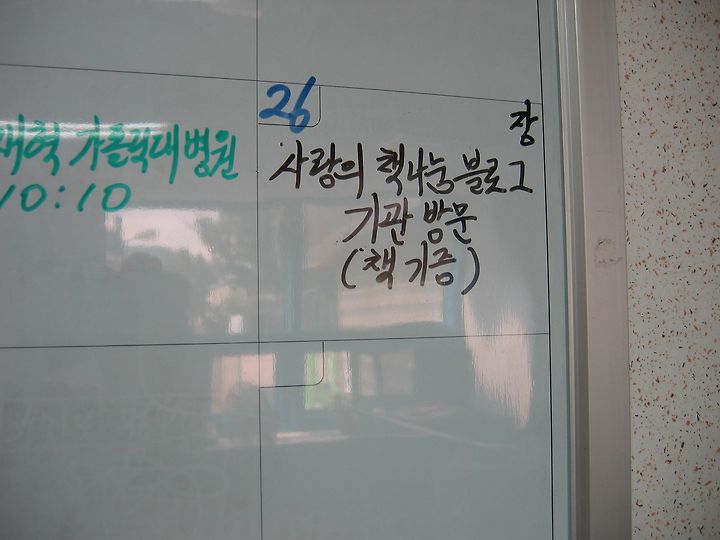 26
장
사랑의 책나눔 블로그
기관 방문
(책 기증)
재혁 가톨릭대병원
10:10